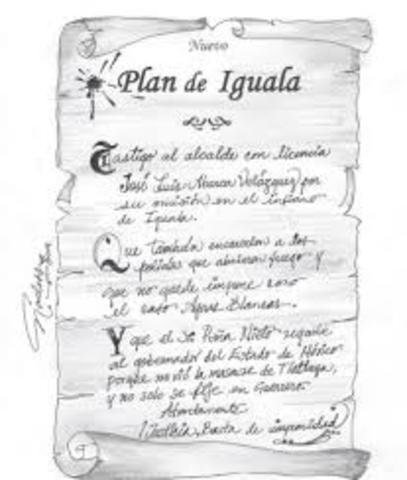 Nuevo
Plan de Iguala
Castigo al alcalde con licencia
José Luis Abarca Velázquez por
su omisión en el infierno
de Iguala.
Que también encarcelen a los
policías que abrieron fuego y
que no quede impune como
el caso Aguas Blancas.
Y que el Sr. Peña Nieto regañe
al gobernador del Estado de México
porque no vió la masacre de Tlatlaya,
y no solo se fije en Guerrero
Atentamente
Basta de impunidad